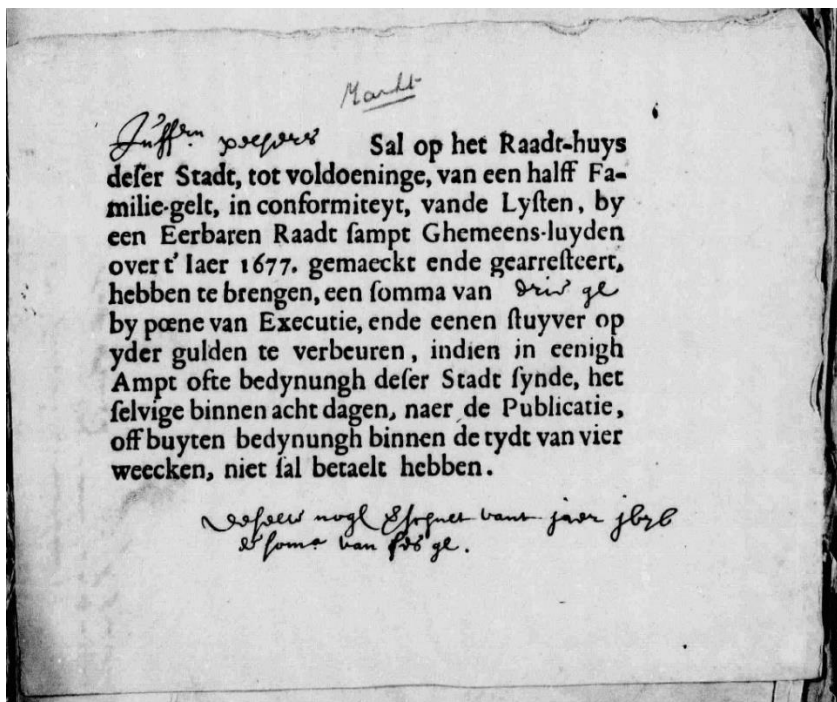 Markt
Juffern Sal op het Raadt-huys
deſer Stadt, tot voldoeninge, van een halff Fa-
milie-gelt, in conformiteyt, vande Lyſten, by
een Eerbaren Raadt ſampt Ghemeens-luyden
over t' Iaer 1677. gemaeckt ende gearreſteert,
hebben te brengen, een ſomma van drie gl
by pœne van Executie, ende eenen ſtuyver op
yder gulden te verbeuren, indien in eenigh
Ampt ofte bedynungh deſer Stadt ſynde, het
ſelvige binnen acht dagen, naer de Publicatie,
off buyten bedynungh binnen de tydt van vier
weecken, niet ſal betaelt hebben.
vant jaer
ſoma van ſes gl.